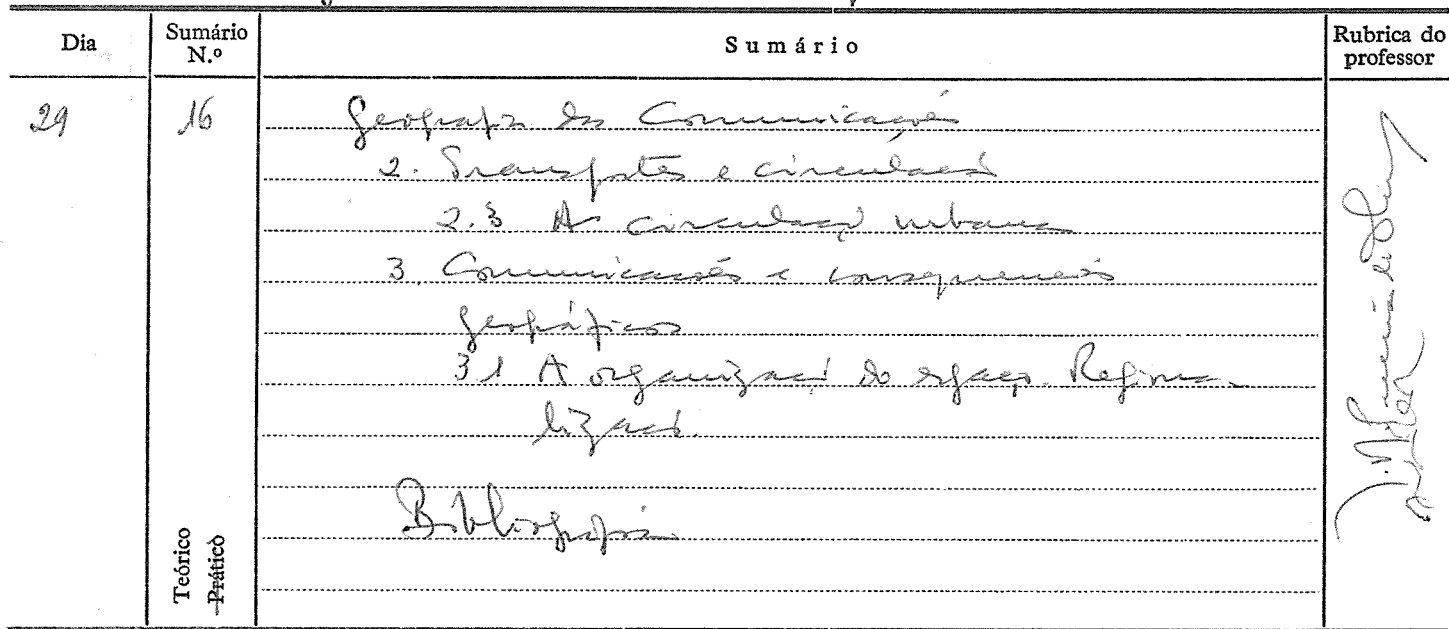 Dia
Sumário
N.º
Sumário
Rubrica do
professor
29
16
Geografia das Comunicações
2. Transportes e circulação
2.3 A circulação urbana
3. Comunicações e consequências
geográficas
3.1 A organização do espaço. Regiona-
lização.
Bibliografia
Teórico
Prático